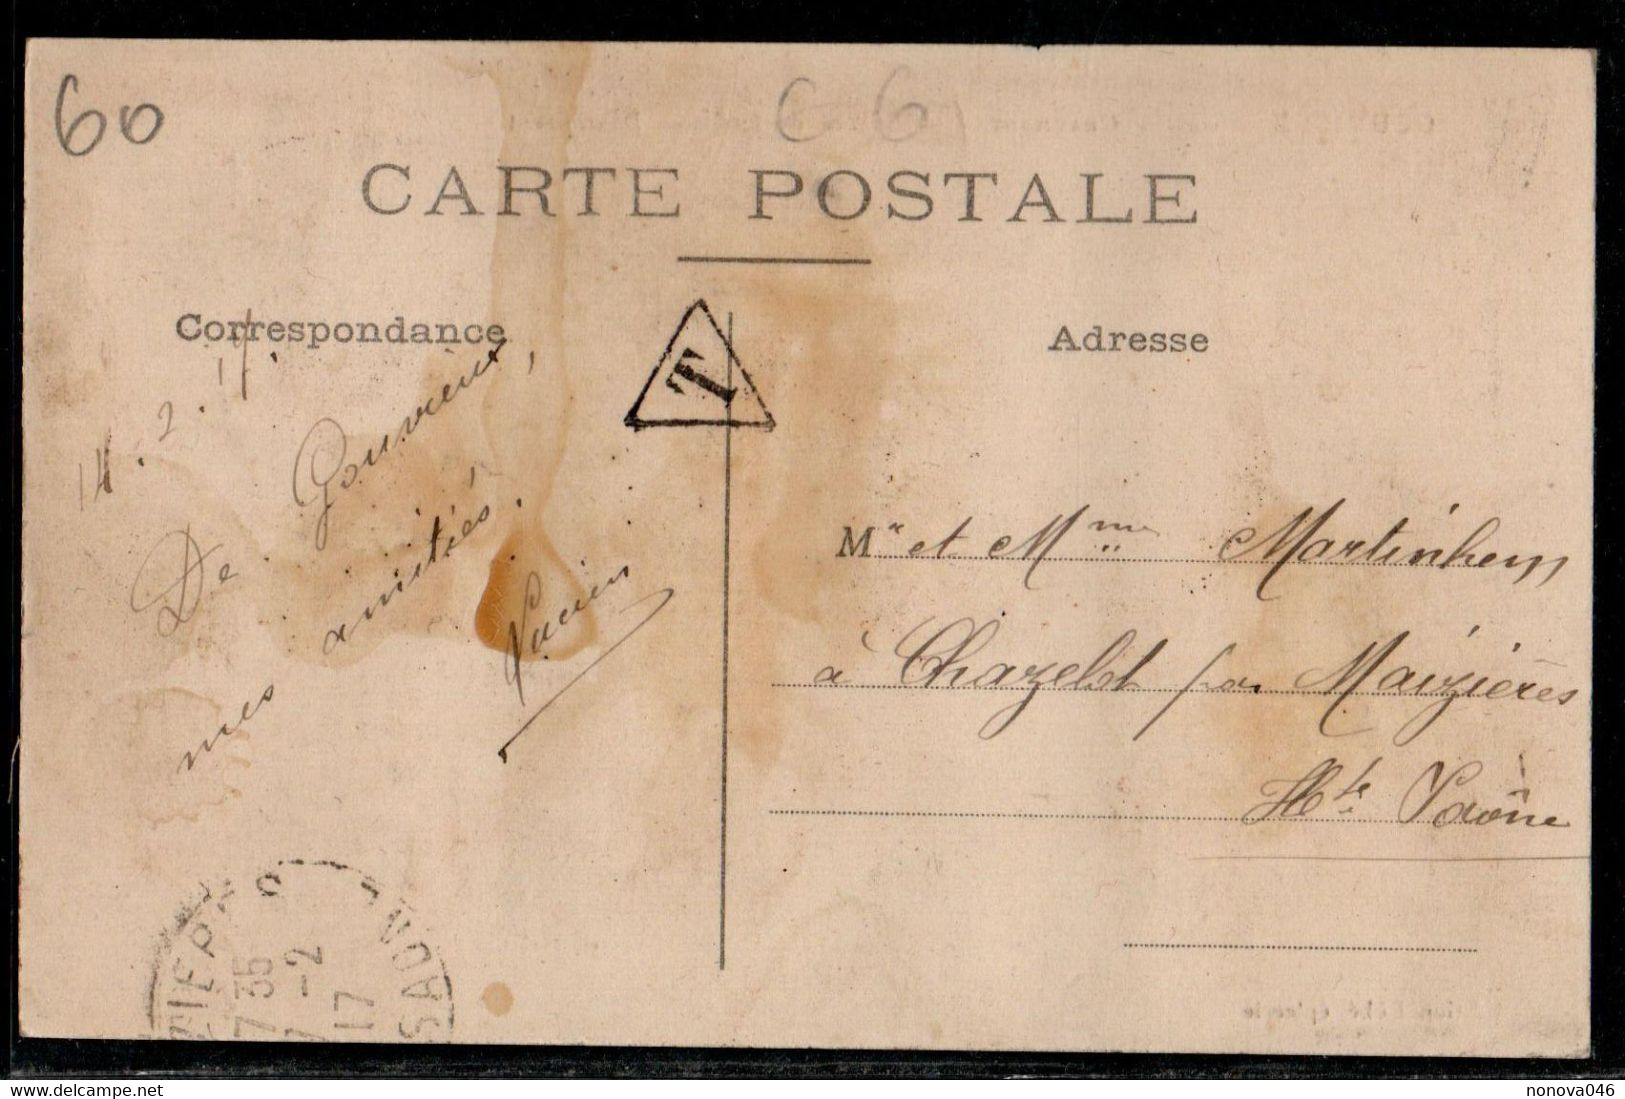 60
C 6
CARTE POSTALE
Correspondance
Adresse
14.2.17.
De Gouvieux,
mes amitiés.
Lucien
T
Mr et Mme Martinhem
à Chazelot par Maizières
Hte Saône
7 35
-2
17
SAONE
www.delcampe.net
nonova046